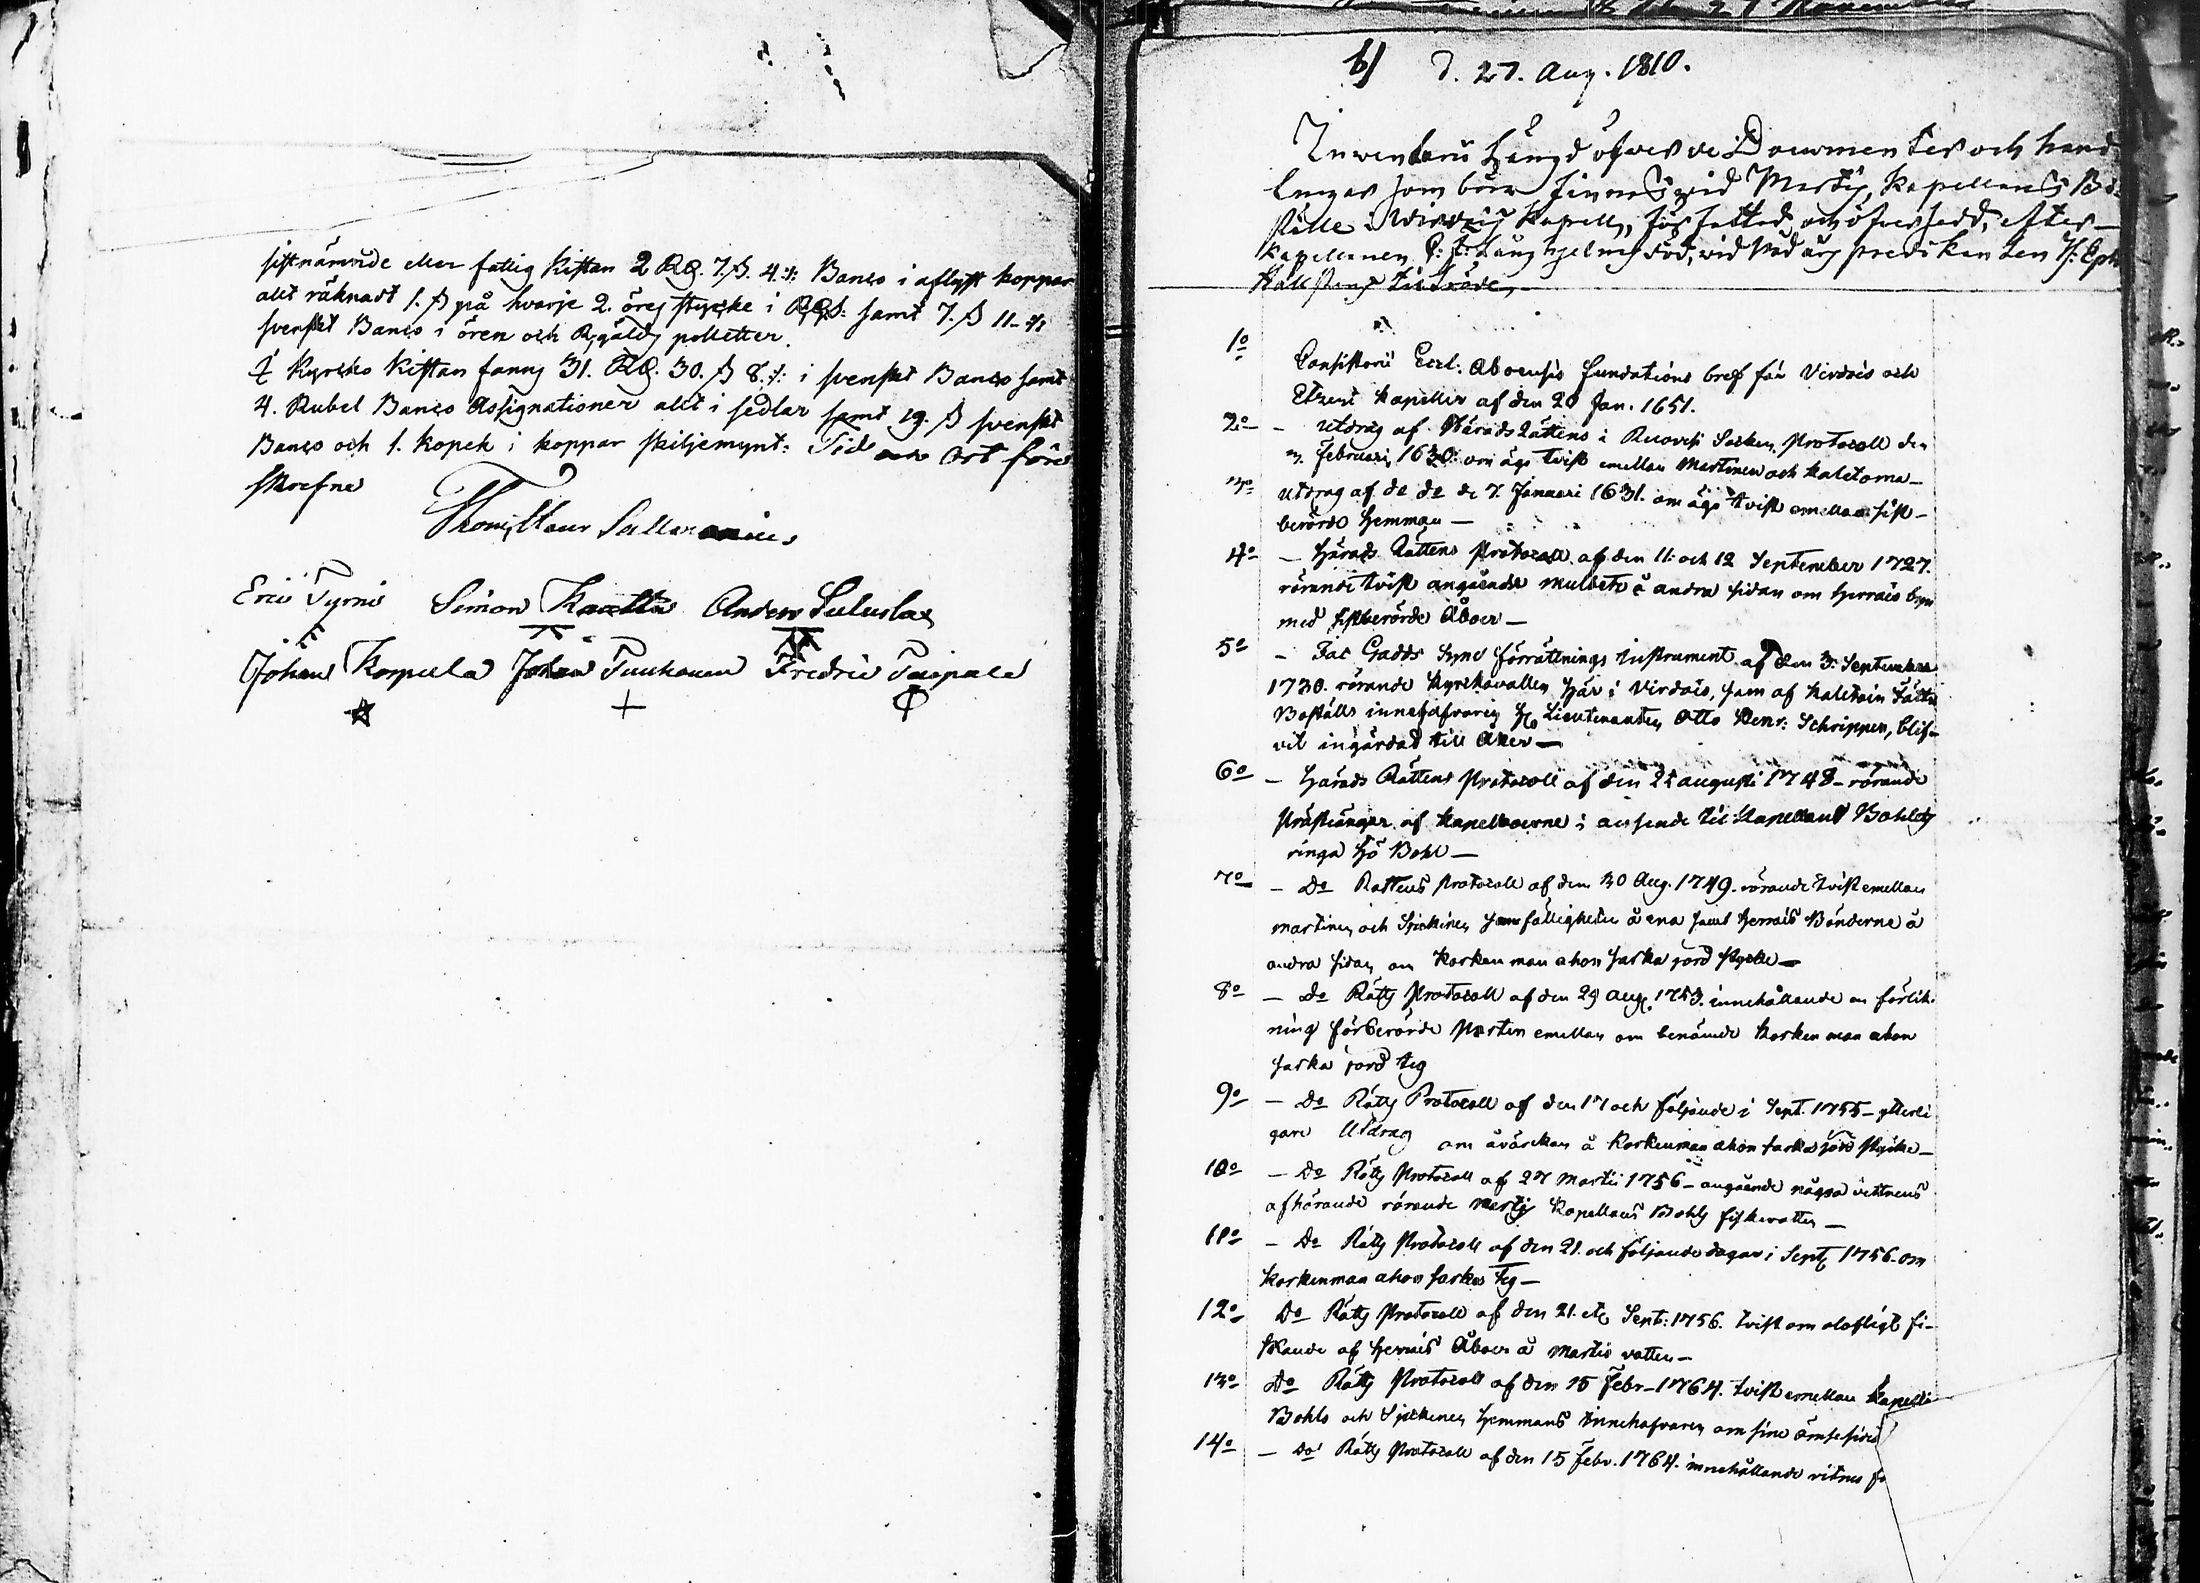 sistnämnde eller fattig Kistan 2 RD. 7. ß. 4. Banco i aflyst koppar
alt räknadt 1. ß på hvarje 2. öres stycke i RGS: samt 7. ß 11
svenskt Banco i ören och R.gälds polletter.
I Kyrcko Kistan fanns 31. RD. 30. ß 8. i svenskt Banco samt
4. Rubel Banco Assignationer alt i sedlar samt 19. ß svenskt
Banco och 1. Kopek i koppar skiljemynt. Tid och Ort före
skrefne
Eric Tyrni Simon Anders
Johan Korpula Johan Tuuhonen Fredric Taipale
b) d. 27. Aug. 1810.
Inventarii Längd öfver de Documenter och hand
lingar som böra finnas vid Martis Kapellans Bo-
ställe i Virdois Kapell, författad och öfversedd, efter
Kapellanen Långhjelms död, vid Nådårs predikanten
Hällstens Tilträde,
1o Consistorii Eccl. Aboensis fundations bref för Virdois och
Etzeri Kapeller af den 20 Jan. 1651.
2o – Utdrag af Härads Rättens i Ruovesi Socken, Protocoll den
Februarii 1630. om ägo tvist emellan Martinen och Kaletoma
3o Utdrag af do do d. 7. Januari 1631. om ägo tvist emellan sist-
berörde Hemman –
4o – Härads Rättens Protocoll af den 11. och 12 September 1727.
rörande tvist angående mulbete å andra sidan om Herrois byn
med sistberörde Åboer –
5o – Fac Gadds Syne förrättnings Instrument af den 3. September
1730. rörande Kyrckovallen här i Virdois, som af Kaletoin Sätte
Boställs innehafvaren Hr Lieutenanten Otto Henr: Schrippen, blif-
vit ingärdad till Åker –
6o – Härads Rättens Protocoll af den 22 augusti 1748 – rörande
af Kapelboerne i anseende til Kapellans Bohlets
ringa Hö Bohl –
7o – Do Rättens Protocoll af den 30 Aug. 1749. rörande tvist emellan
Martinen och Sjöckinen samfälligheten å ena samt Herrois Bönderne å
andra sidan, om Korkenmanahon sarka jord stycke –
8o – Do Rätts Protocoll af den 29 Aug. 1753. innehållande en förlik-
ning förberörde Parter emellan om benämde Korkenmanahon
sarka jord teg
9o – Do Rätts Protocoll af den 17 och följande i Sept. 1755 – ytterli
gare Utdrag om åvärckan å Korkenmanahon sarka jord stycke –
10o – Do Rätts Protocoll af 27 Martii 1756 – angående några vittnens
afhörande rörande Martis Kapellans Bohls fiskevatten –
11o – Do Rätts Protocoll af den 21. och följande dagar i Sept. 1756. om
Korkenmanahon sarka teg –
12o Do Rätts Protocoll af den 21. etc Sept: 1756. tvist om olofligt fi-
skande af Herrois Åboer å Martis vatten –
13o Do Rätts Protocoll af den 15 Febr. 1764. tvist emellan Kapells
Bohls och Sjöckinen Hemmans Innehafvaren om sine ömse sides
14o – Do Rätts Protocoll af den 15 Febr. 1764. innehållande vitnes